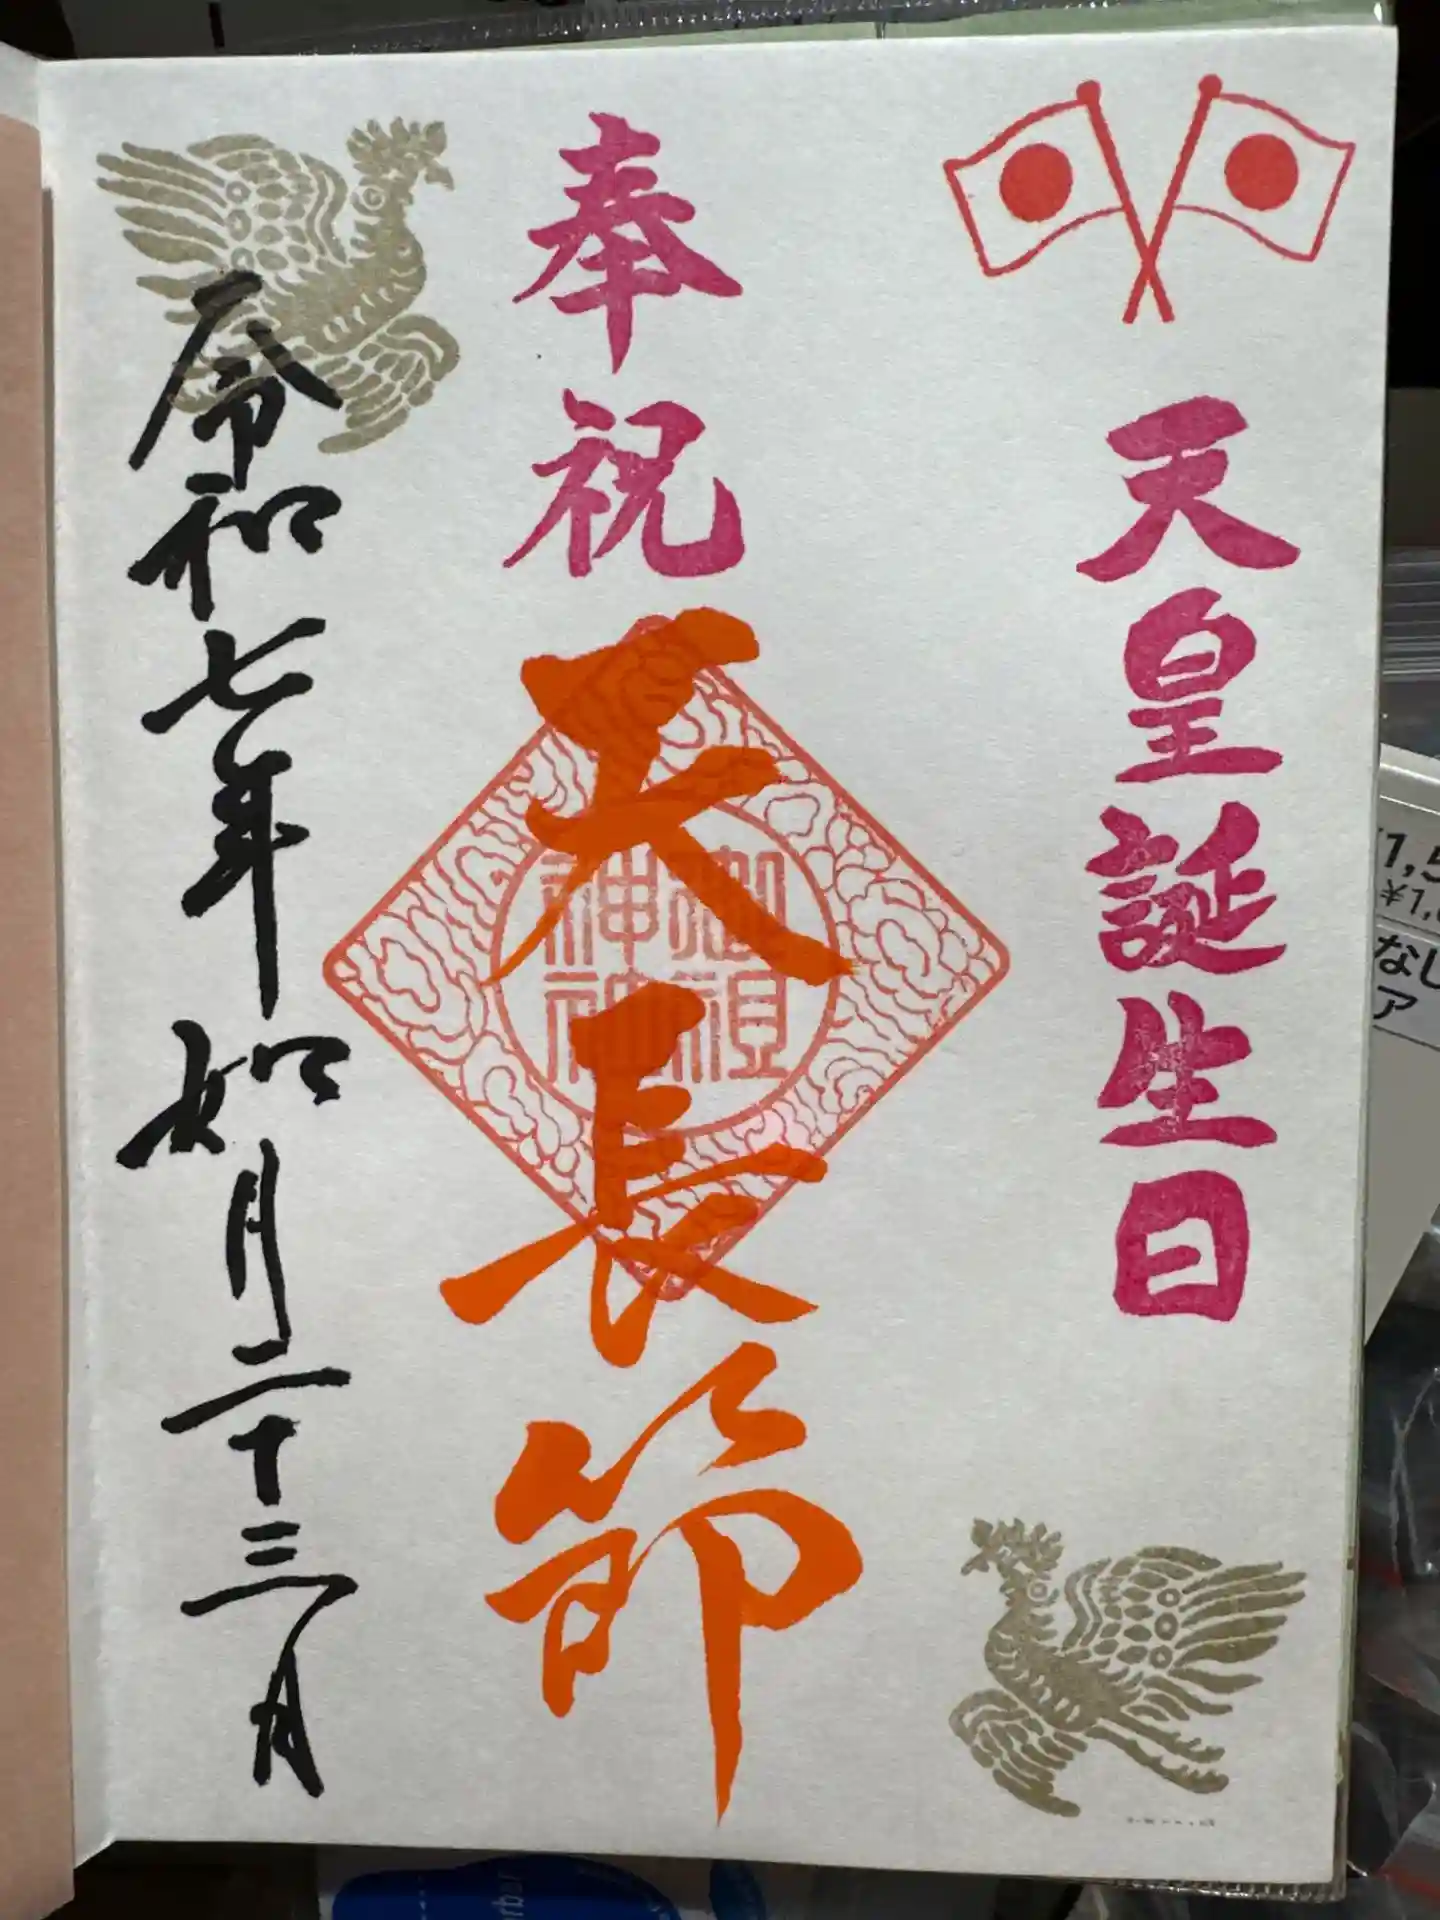 天皇誕生日
奉祝
天長節
令和七年如月二十三日
1,5
¥1,
なし
ア